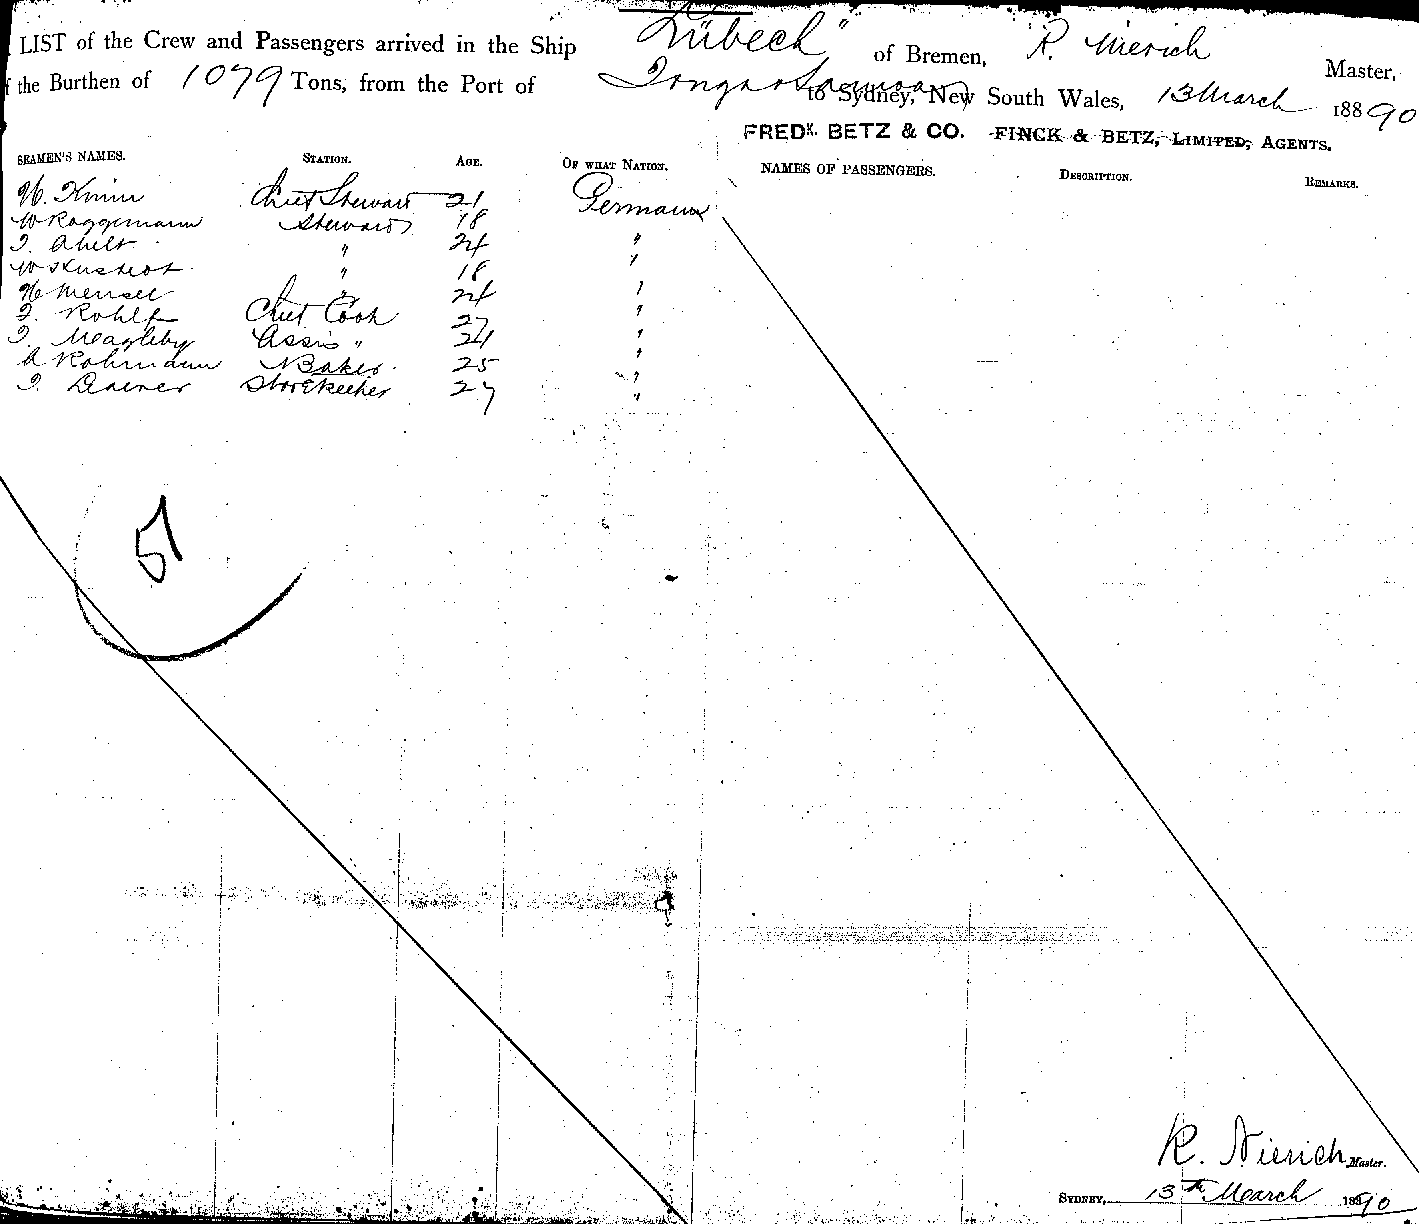 LIST of the Crew and Passengers arrived in the Ship "Lübeck" of Bremen, R. Nierich Master,
the Burthen of 1079 Tons, from the Port of Tonga & Samoa to Sydney, New South Wales, 13 March 18890
FREDK. BETZ & CO. FINCK & BETZ, LIMITED, AGENTS.
SEAMEN'S NAMES. STATION. AGE. OF WHAT NATION. NAMES OF PASSENGERS. DESCRIPTION. REMARKS.
H. Chief Steward 21 German
W Roggemann Steward 18
" 24 "
W " 18 "
H Mensel " 24 "
Rohlf Chief Cook 27 "
Meagleby Assis " 21 "
Rohmann Baker 25 "
Storekeeper 27 "
51
R. Nierich Master.
SYDNEY, 13th March 18890